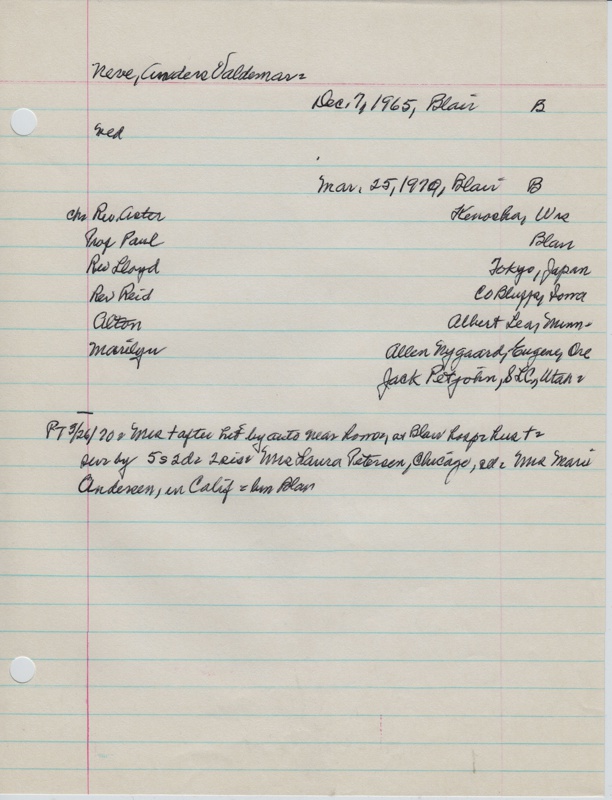 Neve, Anders Valdemar =
Dec. 7, 1965, Blair B
wed
Mar. 25, 1970, Blair B
chn Rev. Aster Kenosha, Wis
Prof Paul Blair
Rev Lloyd Tokyo, Japan
Rev Reid Co Bluffs, Iowa
Alton Albert Lea, Minn =
Marilyn Allen Nygaard, Eugene, Ore
Jack Petjohn, SLC, Utah =
PT 3/26/70 = Mrs + after hit by auto near home, at Blair hosp = hus + =
surv by 5s 2d = 2 sis = Mrs Laura Petersen, Chicago, ad = Mrs Marie
Andersen, in Calif = bur Blair